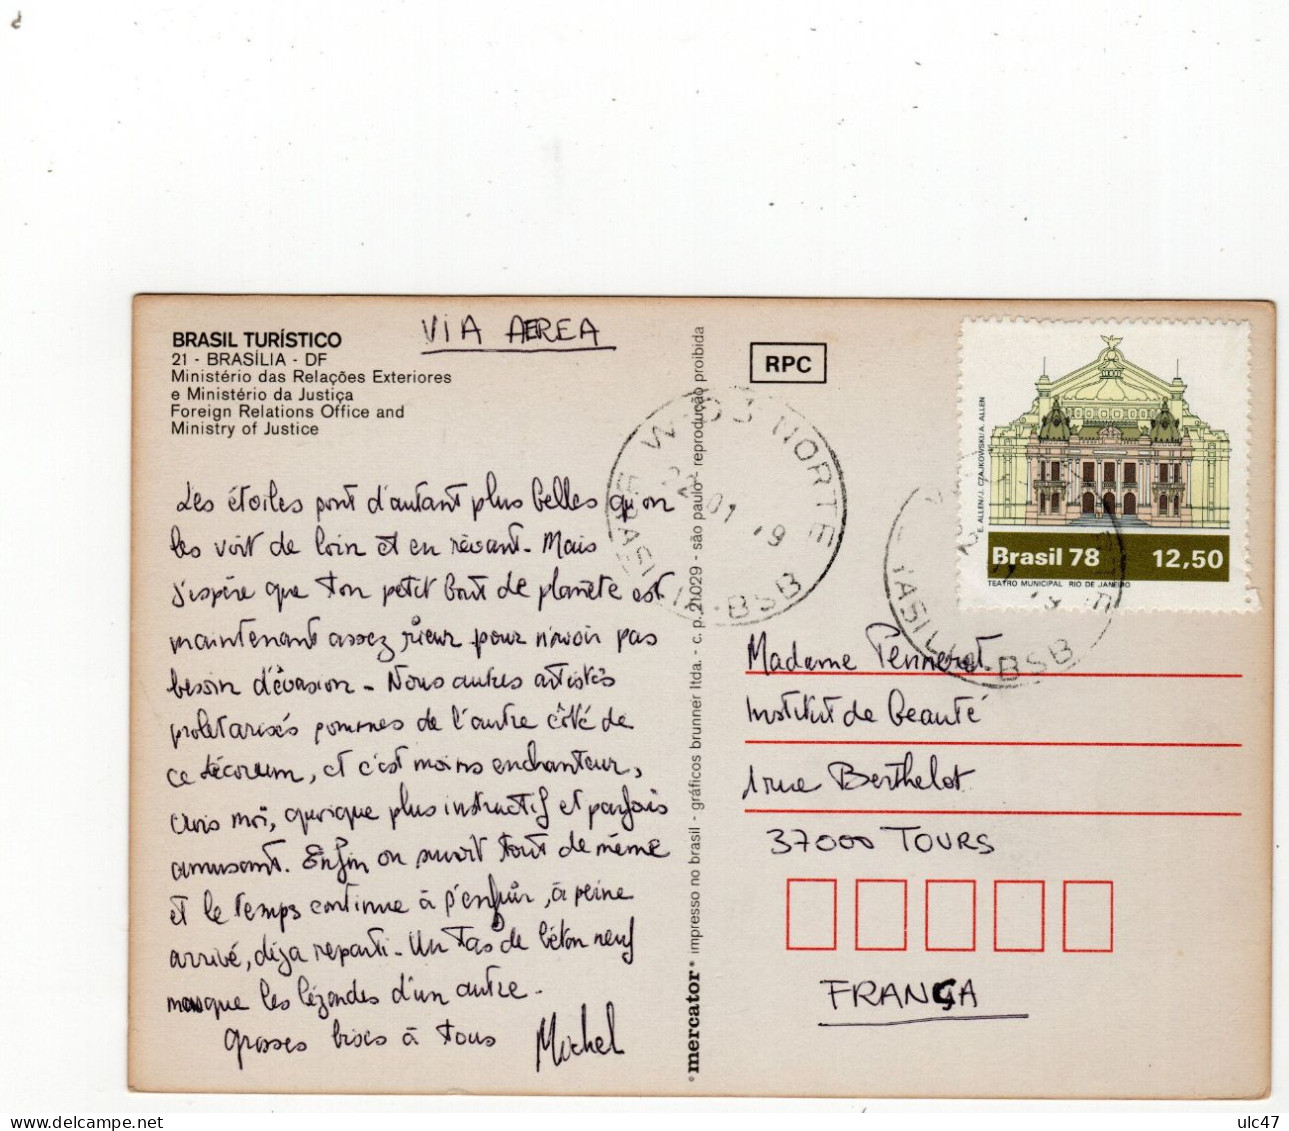 BRASIL TURÍSTICO
21 - BRASÍLIA - DF
Ministério das Relações Exteriores
e Ministério da Justiça
Foreign Relations Office and
Ministry of Justice
VIA AEREA
Les étoiles sont d'autant plus belles qu'on
les voit de loin et en rêvant. Mais
j'espère que ton petit bout de planète est
maintenant assez rieur pour n'avoir pas
besoin d'évasion. Nous autres artistes
proletarisés sommes de l'autre côté de
ce décorum, et c'est moins enchanteur,
crois moi, quoique plus instructif et parfois
amusant. Enfin on survit tout de même
et le temps continue à s'enfuir, à peine
arrivé, déja reparti. Un tas de béton neuf
masque les lézardes d'un autre.
Grosses bises à tous Michel
mercator impresso no brasil - gráficos brunner ltda. - c. p. 21.029 - são paulo - reprodução proibida
RPC
W-03 NORTE
22 01 79
BRASILIA-BSB
E. ALLEN/J. CZAJKOWSKI/A. ALLEN
Brasil 78 12,50
TEATRO MUNICIPAL RIO DE JANEIRO
BRASILIA-BSB
Madame Penneret
Institut de beauté
1 rue Berthelot
37000 TOURS
FRANÇA
ulc47